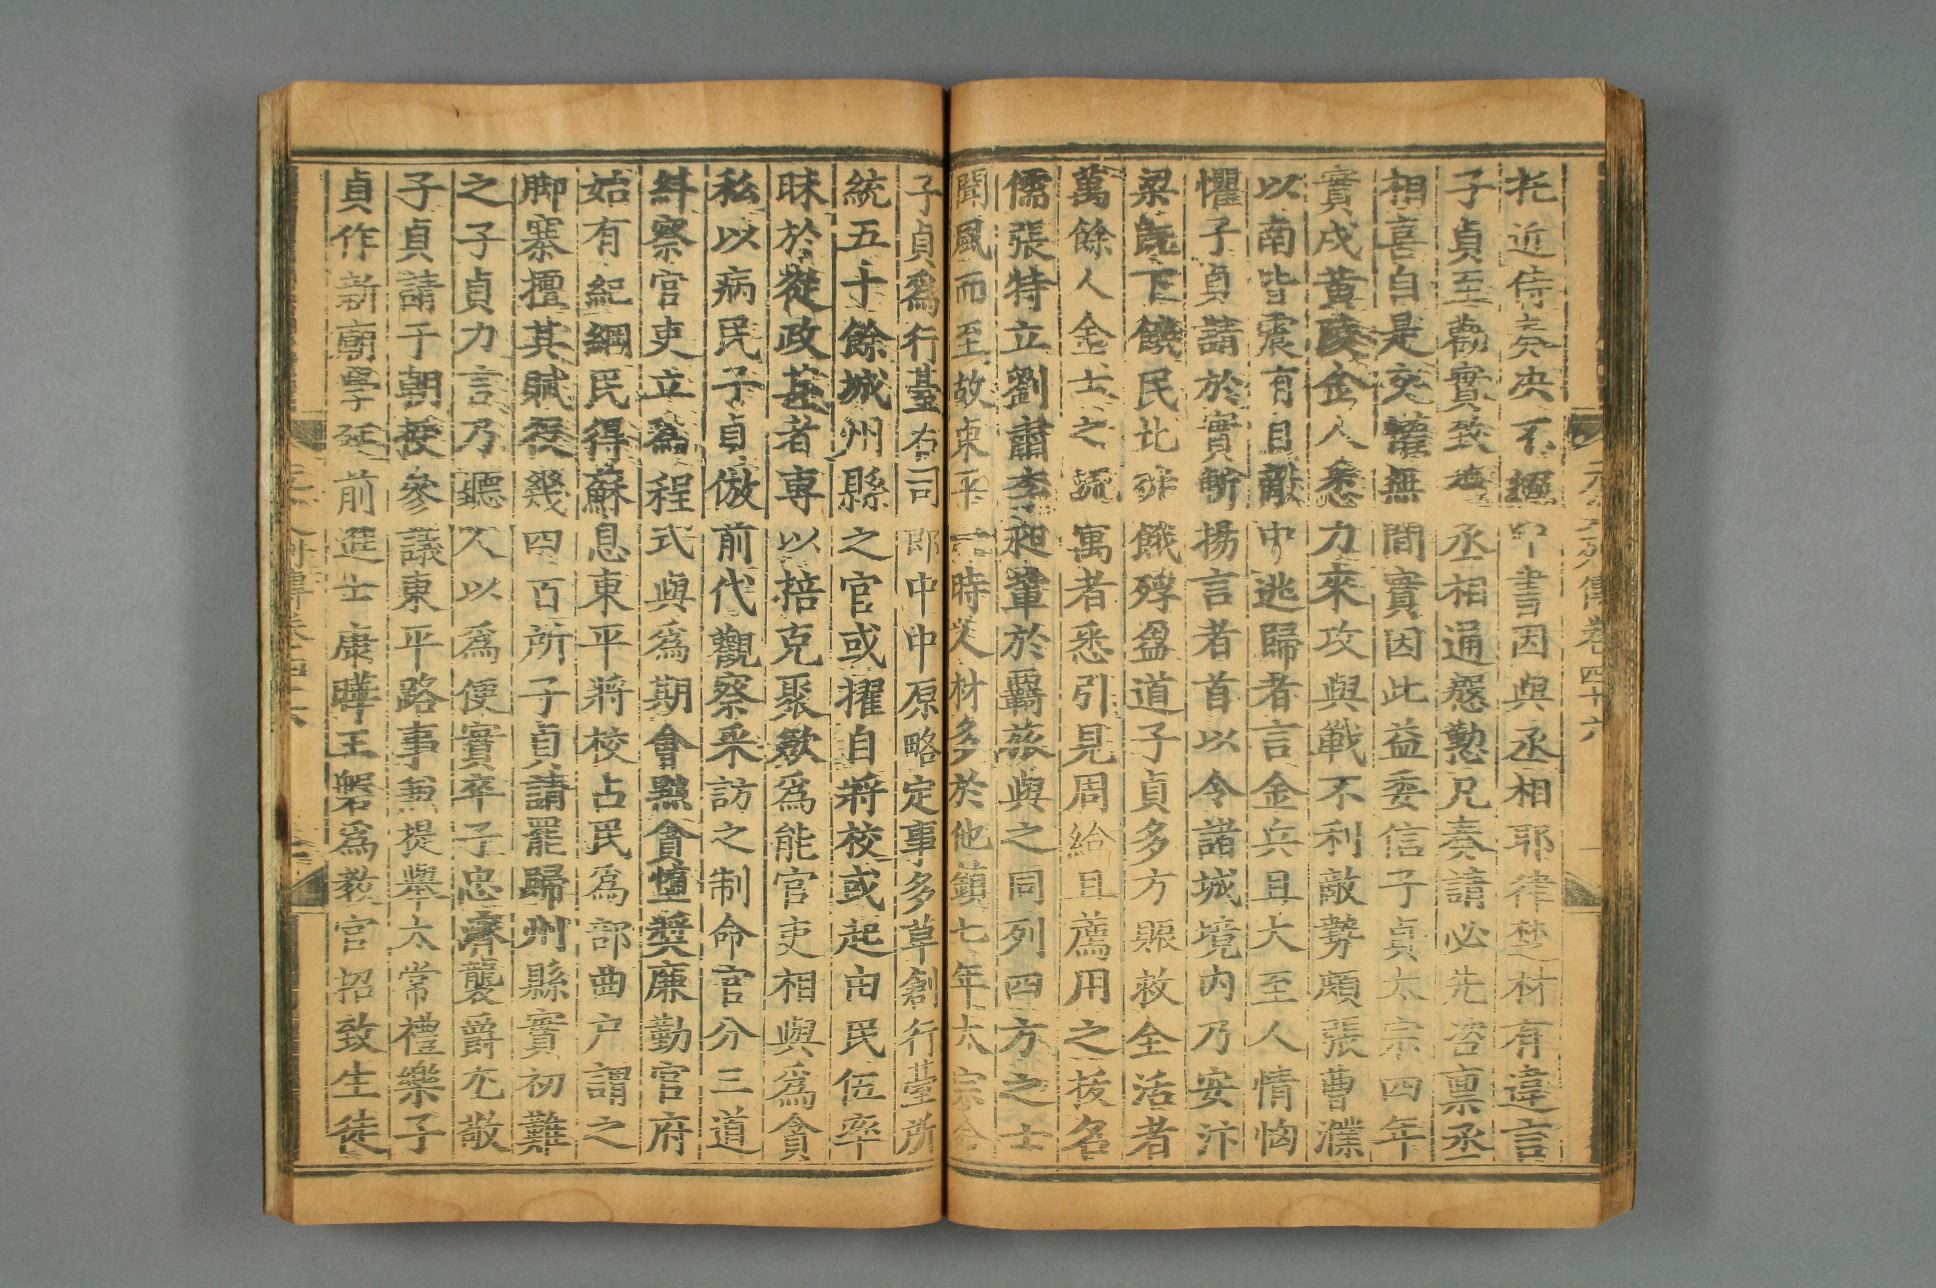 托近侍奏决不經中書因與丞相耶律楚材有違言
子貞至勸實致禮丞相通慇懃凡奏請必先咨禀丞
相喜自是交懽無間實因此益委信子貞太宗四年
實戍黃陵金人悉力來攻與戰不利敵勢頗張曹濮
以南皆震有自敵中逃歸者言金兵且大至人情恟
懼子貞請於實斬揚言者首以令諸城境内乃安汴
梁既下饑民北徙餓殍盈道子貞多方賑救全活者
萬餘人金士之流寓者悉引見周給且薦用之拔名
儒張特立劉肅李昶軰於羈旅與之同列四方之士
聞風而至故東平一時人材多於他鎮七年太宗命
子貞爲行臺右司郎中中原略定事多草創行臺所
統五十餘城州縣之官或擢自將校或起由民伍率
昧於從政甚者專以掊克聚歛爲能官吏相與爲貪
私以病民子貞倣前代觀察采訪之制命官分三道
糾察官吏立爲程式與爲期會黜貪墮奬廉勤官府
始有紀綱民得蘇息東平將校占民爲部曲户謂之
脚寨擅其賦役幾四百所子貞請罷歸州縣實初難
之子貞力言乃聽人以爲便實卒子忠濟襲爵尤敬
子貞請于朝授參議東平路事兼提舉太常禮樂子
貞作新廟學延前進士康曄王磐爲教官招致生徒
元史列傳卷四十六
一
元史列傳卷四十六